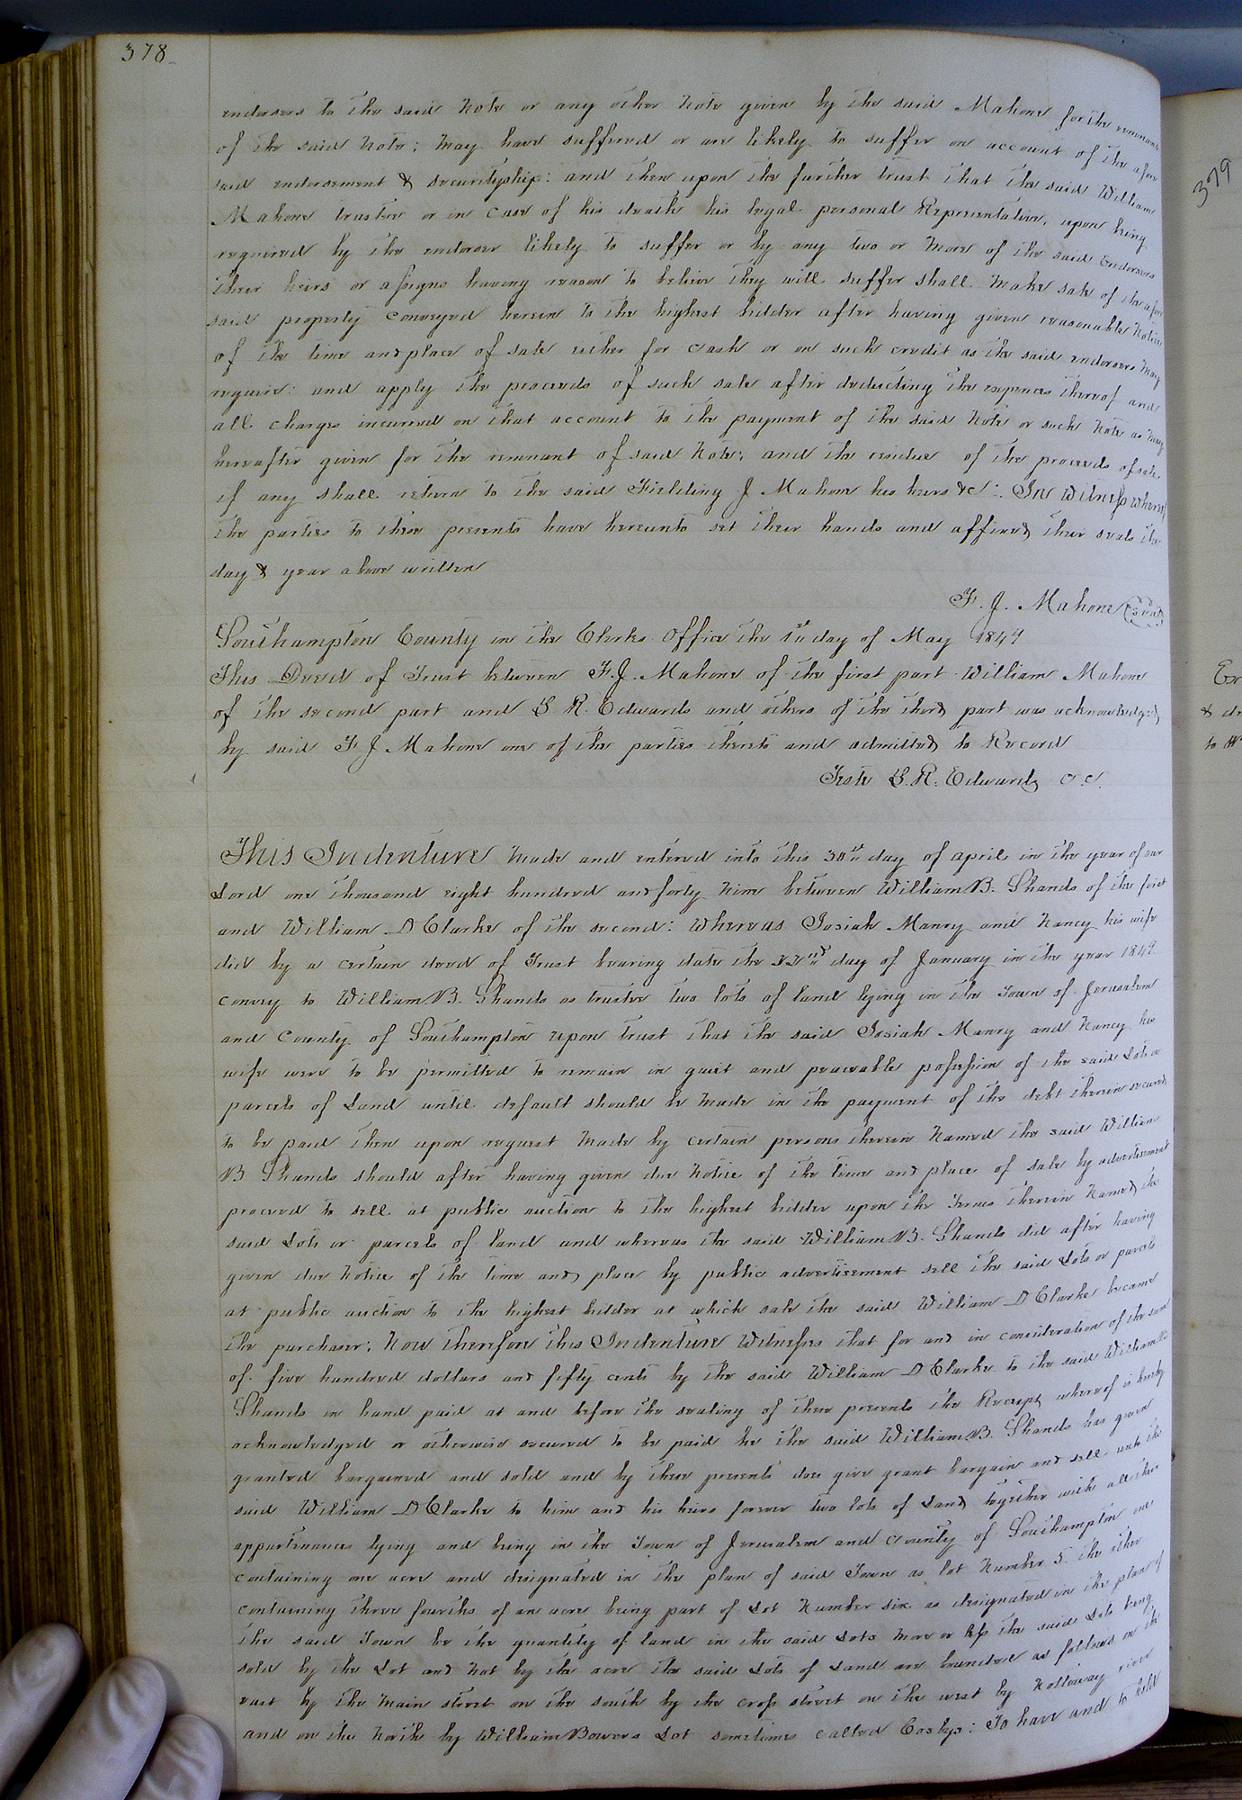 378
endorsers to the said Note or any other Note given by the said Mahone for the remnant
of the said Note; may have suffered or are likely to suffer on account of the afore
said endorsement & securityship: and then upon the further trust that the said William
Mahone trustee or in case of his death his legal personal Representative, upon being
required by the endorser likely to suffer or by any two or more of the said Endorsers
their heirs or assigns having reason to believe they will suffer shall make sale of the afore
said property conveyed herein to the highest bidder after having given reasonable Notice
of the time and place of sale either for cash or on such credit as the said endorsers may
require: and apply the proceeds of such sale after deducting the expences thereof and
all charges incurred on that account to the payment of the said Note or such Note as may
hereafter given for the remnant of said Note; and the residue of the proceeds of sale
if any shall return to the said Fielding J Mahone his heirs &c: In Witness Whereof
the parties to these presents have hereunto set their hands and affixed their seals the
day & year above written
F. J. Mahone (Seal)
Southampton County in the Clerks Office the 1st day of May 1849
This Deed of Trust between F. J. Mahone of the first part William Mahone
of the second part and L R. Edwards and others of the third part was acknowledged
by said F J Mahone one of the parties thereto and admitted to Record
Teste L. R. Edwards C.C.
This Indenture Made and entered into this 30th day of April in the year of our
Lord one thousand eight hundred and forty Nine between William B. Shands of the first
and William D Clarke of the second: Whereas Josiah Manry and Nancy his wife
did by a certain deed of Trust bearing date the 22nd day of January in the year 1849
convey to William B. Shands as trustee two lots of land lying in the Town of Jerusalem
and County of Southampton upon trust that the said Josiah Manry and Nancy his
wife were to be permitted to remain in quiet and peaceable possession of the said Lots or
parcels of Land until default should be made in the payment of the debt therein secured
to be paid then upon request made by certain persons therein Named the said William
B Shands should after having given due Notice of the time and place of sale by advertisement
proceed to sell at public auction to the highest bidder upon the Terms therein Named the
said Lots or parcels of land and whereas the said William B. Shands did after having
given due Notice of the time and place by public advertisement sell the said Lots or parcels
at public auction to the highest bidder at which sale the said William D Clarke became
the purchaser; Now therefore this Indenture Witnesses that for and in consideration of the sum
of five hundred dollars and fifty cents by the said William D Clarke to the said William B
Shands in hand paid at and before the sealing of these presents the Receipt whereof is hereby
acknowledged or otherwise secured to be paid he the said William B. Shands has given
granted bargained and sold and by these presents does give grant bargain and sell unto the
said William D Clarke to him and his heirs forever two lots of Land together with all their
appurtenances lying and being in the Town of Jerusalem and County of Southampton one
containing one acre and designated in the plan of said Town as lot Number 5. the other
containing three fourths of an acre being part of Lot Number six as designated in the plan of
the said Town be the quantity of land in the said Lots more or less the said Lots being
sold by the Lot and Not by the acre the said Lots of Land are bounded as follows on the
east by the Main street on the south by the cross street on the west by Nottoway river
and on the North by William Bowers Lot sometimes called Cosbys: To have and to hold
379
& de
to